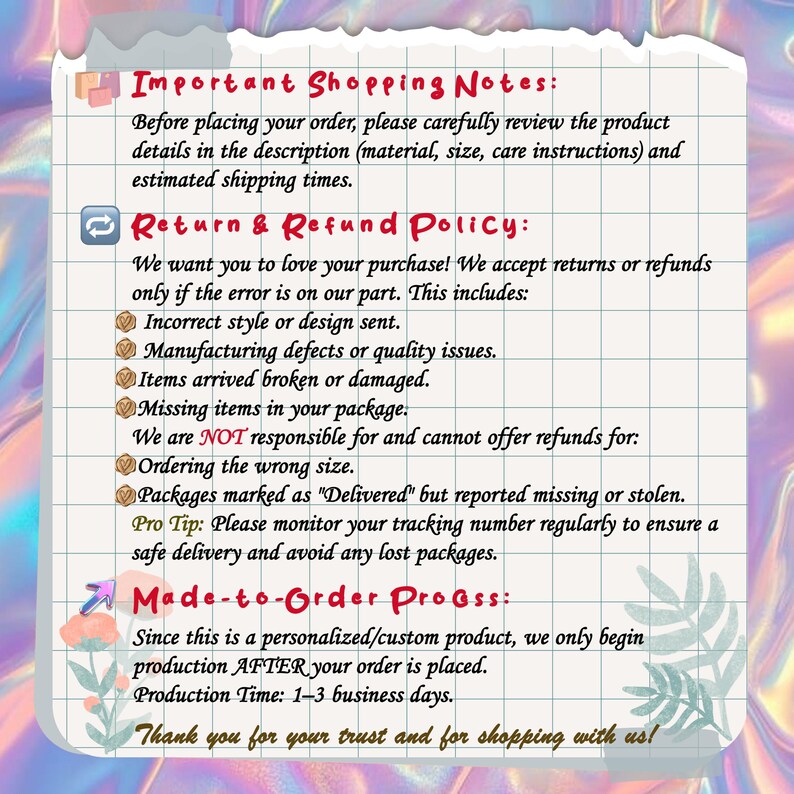 Important Shopping Notes:
Before placing your order, please carefully review the product
details in the description (material, size, care instructions) and
estimated shipping times.
Return & Refund Policy:
We want you to love your purchase! We accept returns or refunds
only if the error is on our part. This includes:
Incorrect style or design sent.
Manufacturing defects or quality issues.
Items arrived broken or damaged.
Missing items in your package.
We are NOT responsible for and cannot offer refunds for:
Ordering the wrong size.
Packages marked as "Delivered" but reported missing or stolen.
Pro Tip: Please monitor your tracking number regularly to ensure a
safe delivery and avoid any lost packages.
Made-to-Order Process:
Since this is a personalized/custom product, we only begin
production AFTER your order is placed.
Production Time: 1–3 business days.
Thank you for your trust and for shopping with us!